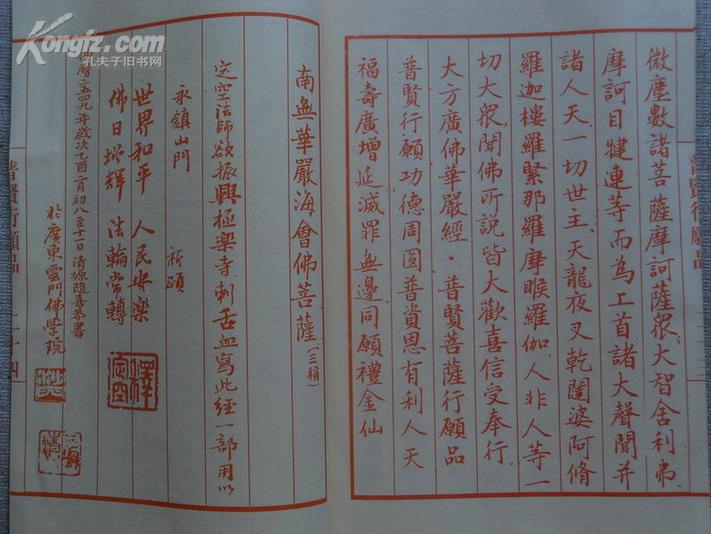 微塵數諸菩薩摩訶薩眾大智舍利弗
摩訶目犍連等而為上首諸大聲聞并
諸人天一切世主天龍夜叉乾闥婆阿脩
羅迦樓羅緊那羅摩睺羅伽人非人等一
切大眾聞佛所說皆大歡喜信受奉行
大方廣佛華嚴經·普賢菩薩行願品
普賢行願功德周圓普資恩有利人天
福壽廣增延滅罪無邊同願禮金仙
南無華嚴海會佛菩薩(三稱)
定空法師欲振興極樂寺刺舌血寫此經一部用以
永鎮山門 祈願
世界和平 人民安樂
佛日增輝 法輪常轉
二五四九年歲次乙酉二月初八至十一日清塬隨喜恭書
於廣東雲門佛學院
釋定空
普賢行願品
普賢行願品 二十四
Kongfz.com
孔夫子旧书网